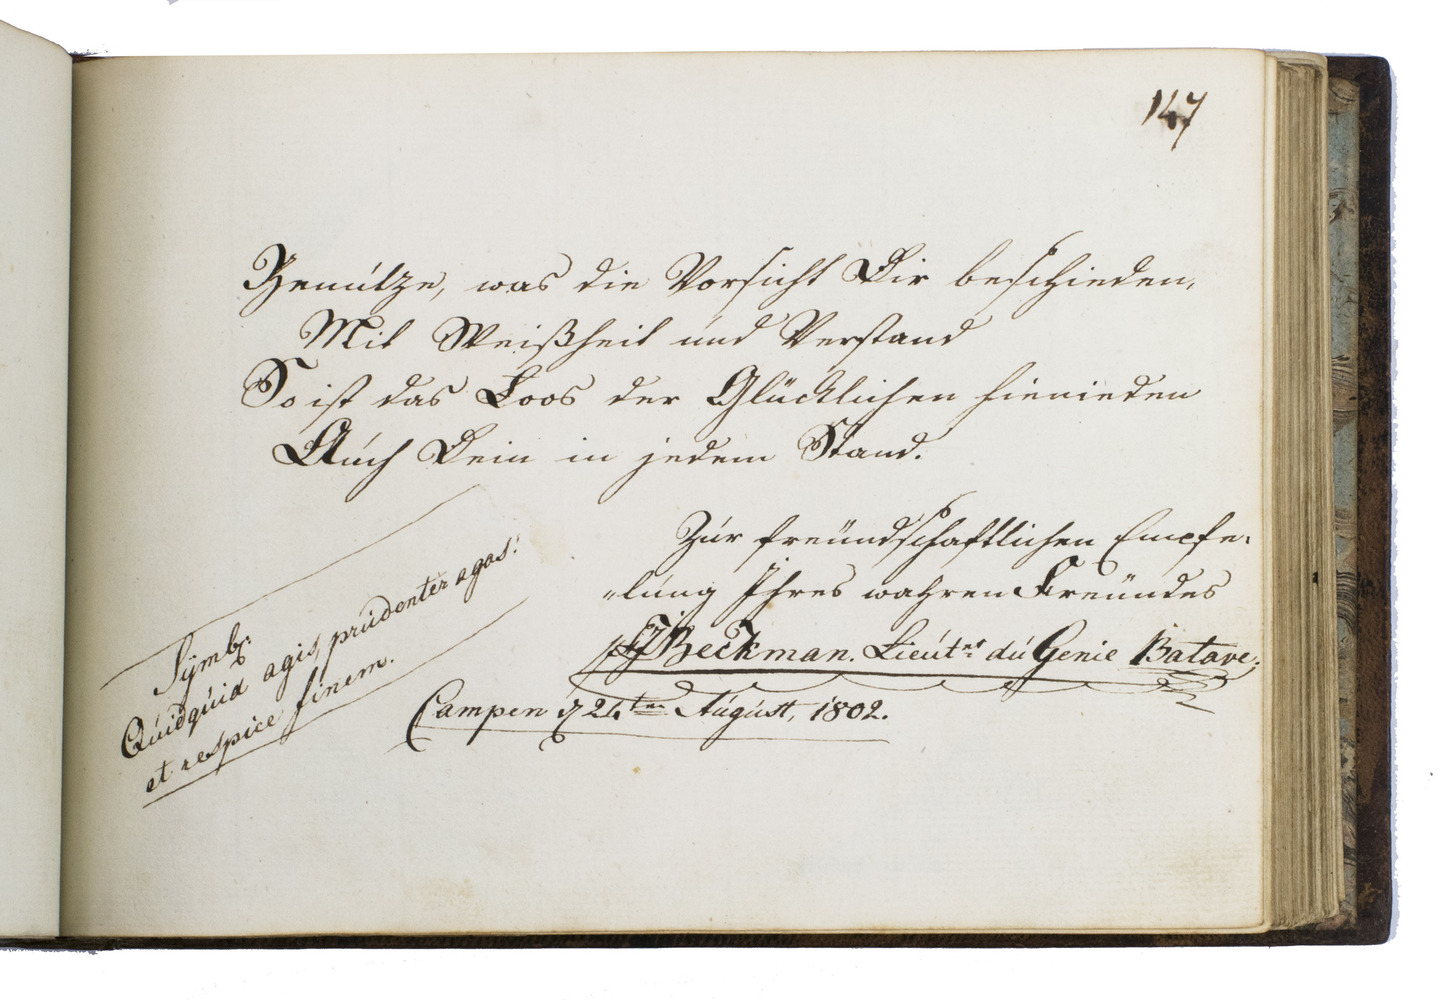 147
Benütze, was die Vorsicht Dir beschieden,
Mit Weißheit und Verstand
So ist das Loos der Glücklichen hienieden
Auch Dein in jedem Stand.
Zur freündschaftlichen Empfe:
"lung Ihres wahren Freündes
Beckman. Lieutnt du Genie Batave;
Campen 24ten August, 1802.
Symb:
Quidquid agis, prudenter agas!
et respice finem.